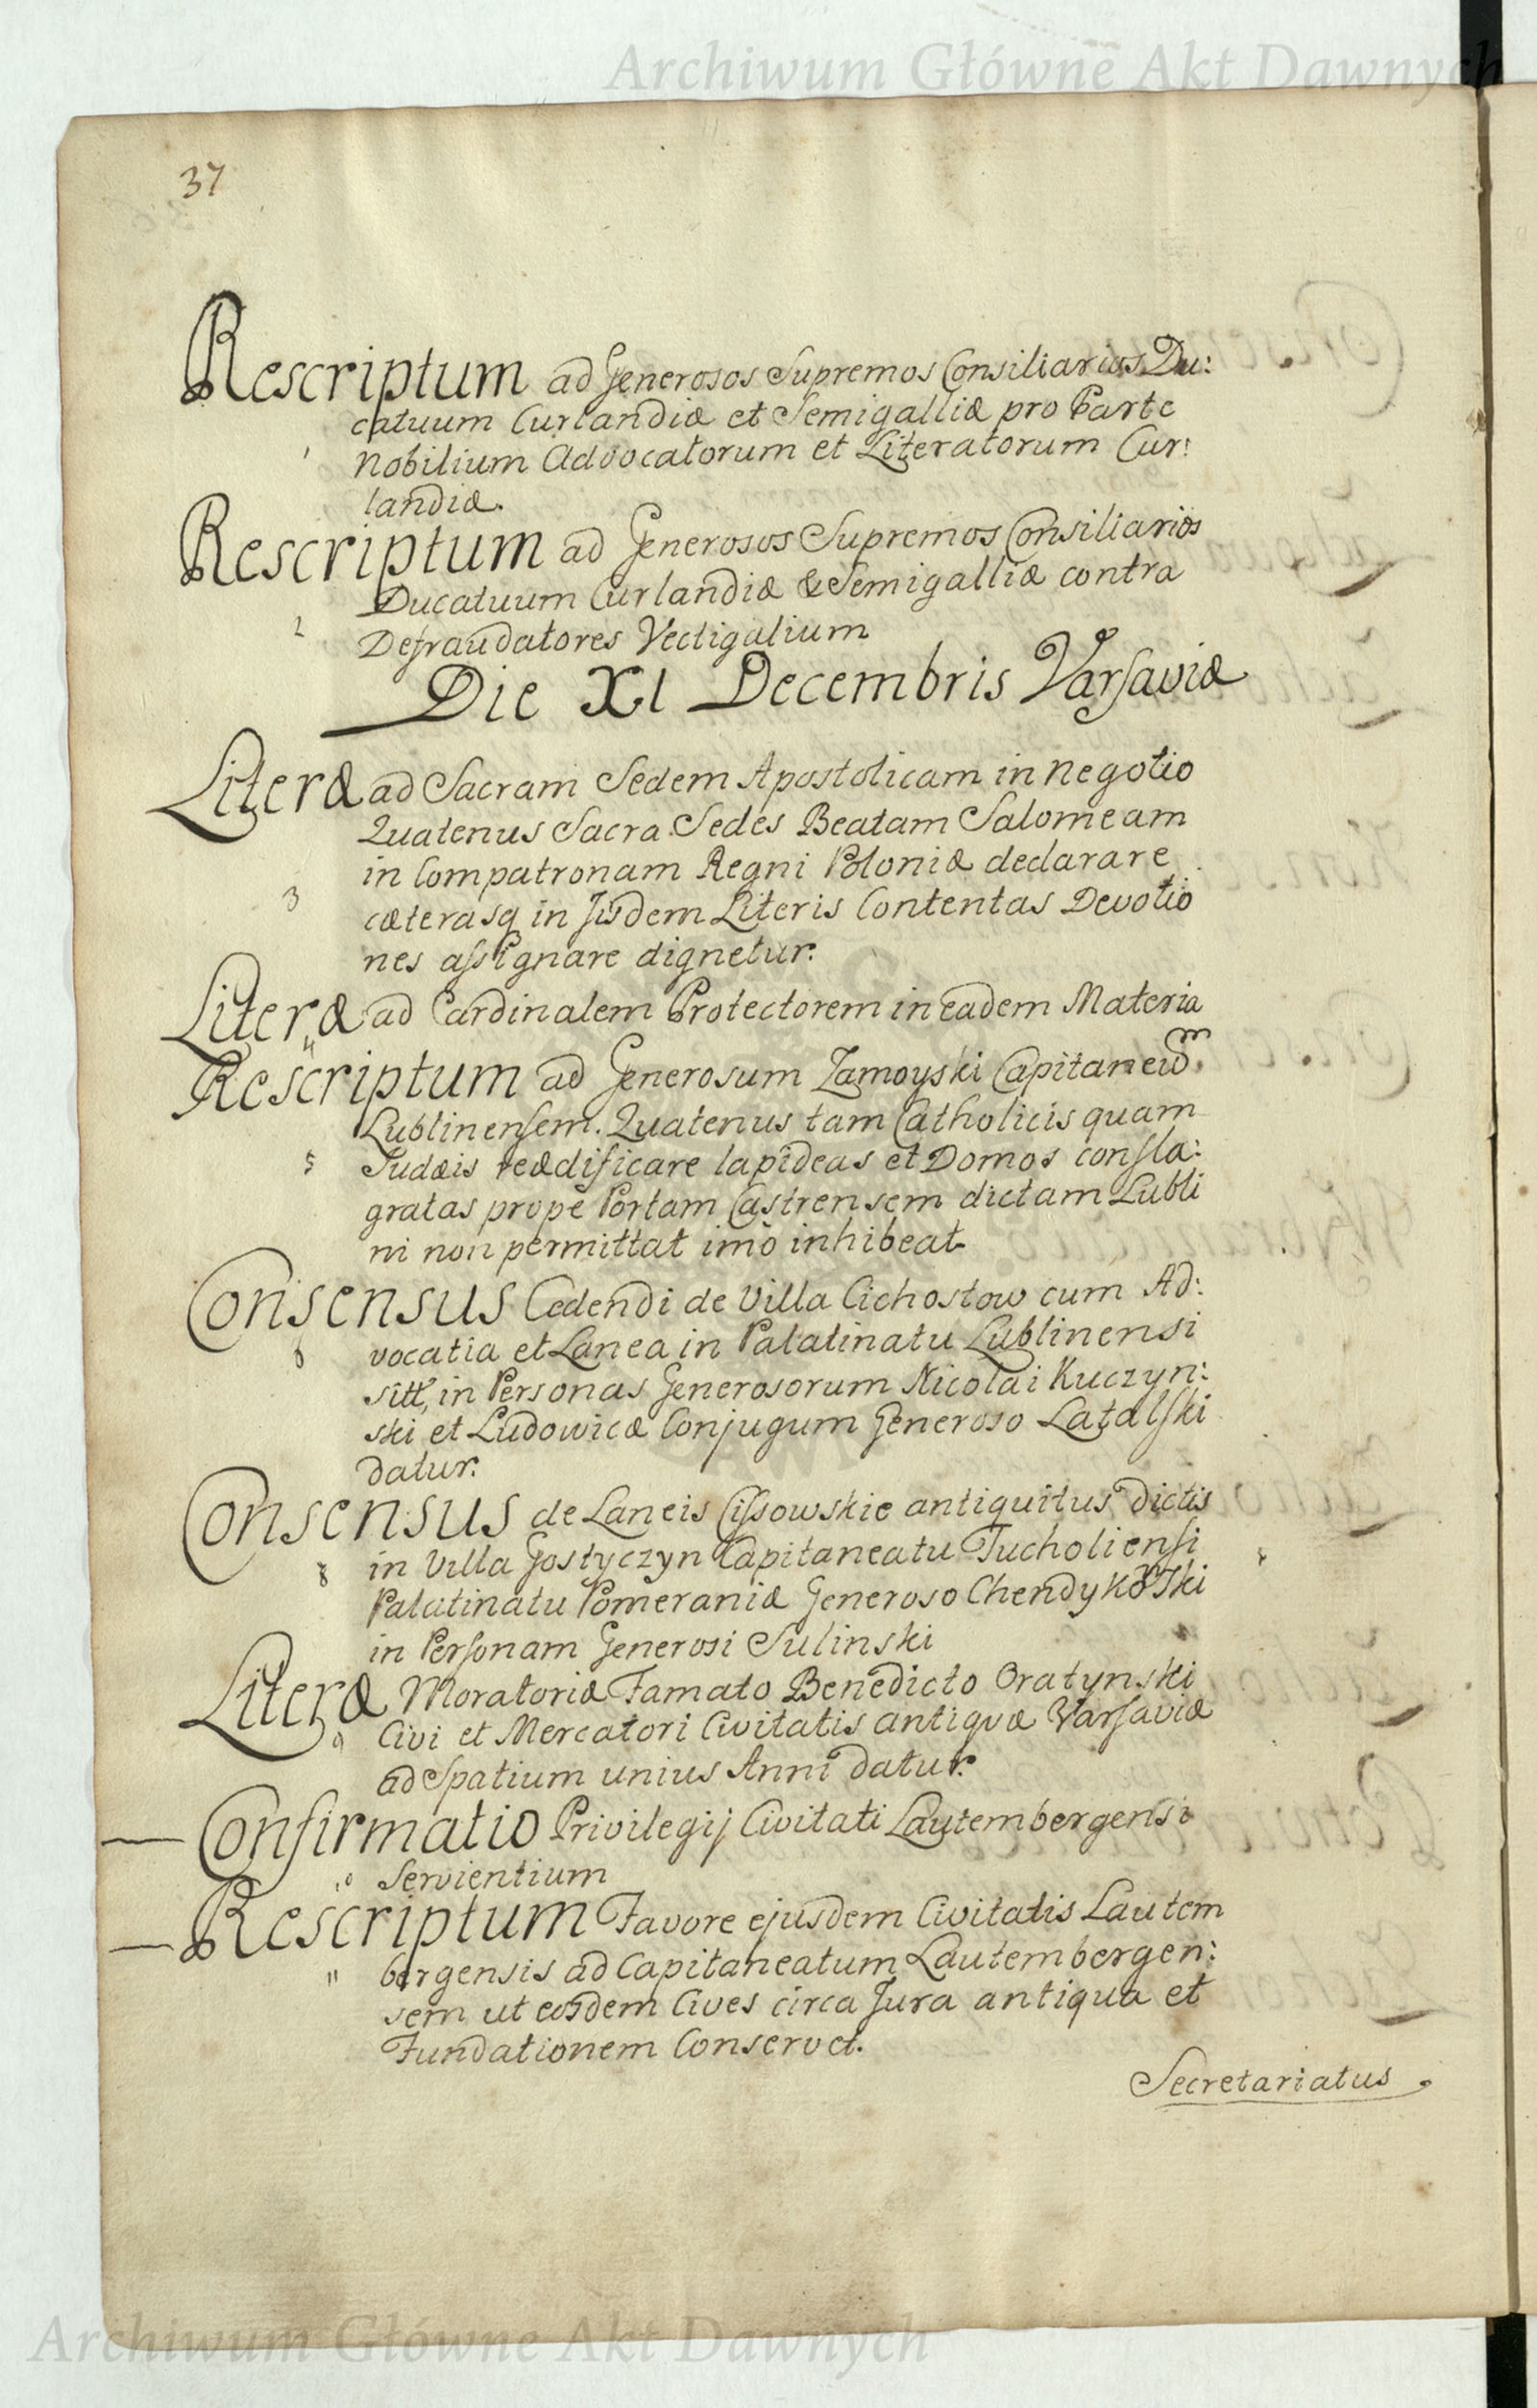 Archiwum Główne Akt Dawnych
37
Rescriptum ad Generosos Supremos Consiliarios Du:
catuum Curlandiæ et Semigalliæ pro Parte
Nobilium Advocatorum et Literatorum Cur:
landiæ.
Rescriptum ad Generosos Supremos Consiliarios
Ducatuum Curlandiæ & Semigalliæ contra
2 Defraudatores Vectigalium
Die XI Decembris Varsaviæ
Literæ ad Sacram Sedem Apostolicam in negotio
Quatenus Sacra Sedes Beatam Salomeam
in Compatronam Regni Poloniæ declarare
3 cæterasq in Iisdem Literis Contentas Devotio
nes assignare dignetur.
Literæ ad Cardinalem Protectorem in eadem Materia
4
Rescriptum ad Generosum Zamoyski Capitaneum
Lublinensem. Quatenus tam Catholicis quam
5 Judæis reædificare lapideas et Domos confla:
gratas prope Portam Castrensem dictam Lubli
ni non permittat imò inhibeat
Consensus Cedendi de Villa Cichostow cum Ad:
6 vocatia et Lanea in Palatinatu Lublinensi
sitt, in Personas Generosorum Nicolai Kuczyn:
ski et Ludowicæ Conjugum Generoso Latalski
datur.
Consensus de Laneis Cissowskie antiquitus dictis
8 in Villa Gostyczyn Capitaneatu Tucholiensi
Palatinatu Pomeraniæ Generoso Chendykowski
in Personam Generosi Sulinski
Literæ Moratoriæ Famato Benedicto Oratynski
9 Civi et Mercatori Civitatis antiquæ Varsaviæ
ad Spatium unius Anni datur.
Confirmatio Privilegij Civitati Lautembergensi
10 Servientium
Rescriptum Favore ejusdem Civitatis Lautem
11 bergensis ad Capitaneatum Lautembergen:
sem ut eosdem Cives circa Jura antiqua et
Fundationem Conservet.
Secretariatus
Archiwum Główne Akt Dawnych